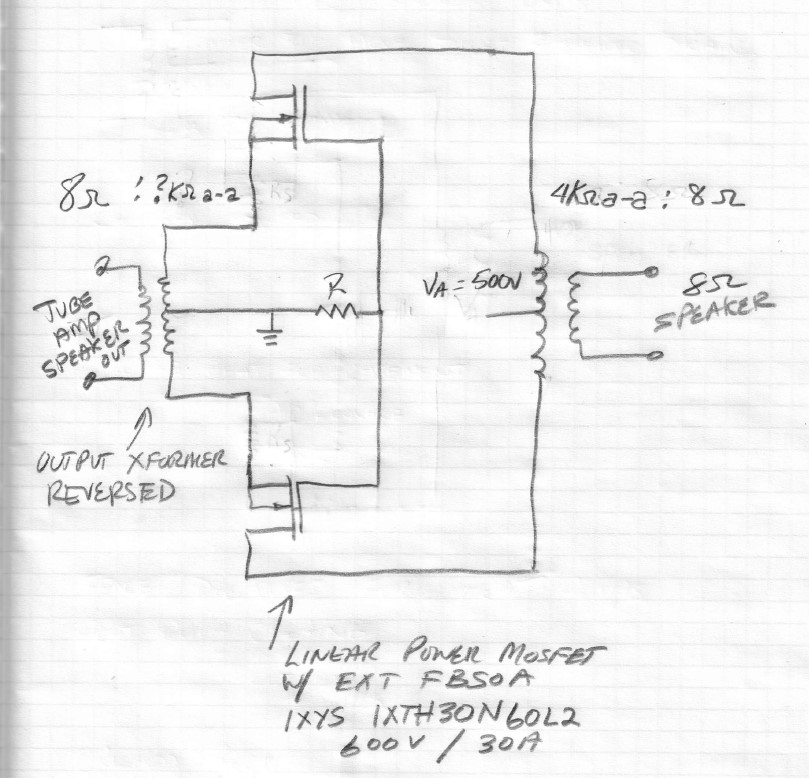 8Ω : ?KΩ a-a
4KΩ a-a : 8Ω
R
VA = 500V
8Ω
SPEAKER
TUBE
AMP
SPEAKER
OUT
OUTPUT XFORMER
REVERSED
LINEAR POWER MOSFET
W/ EXT FBSOA
IXYS IXTH30N60L2
600V / 30A